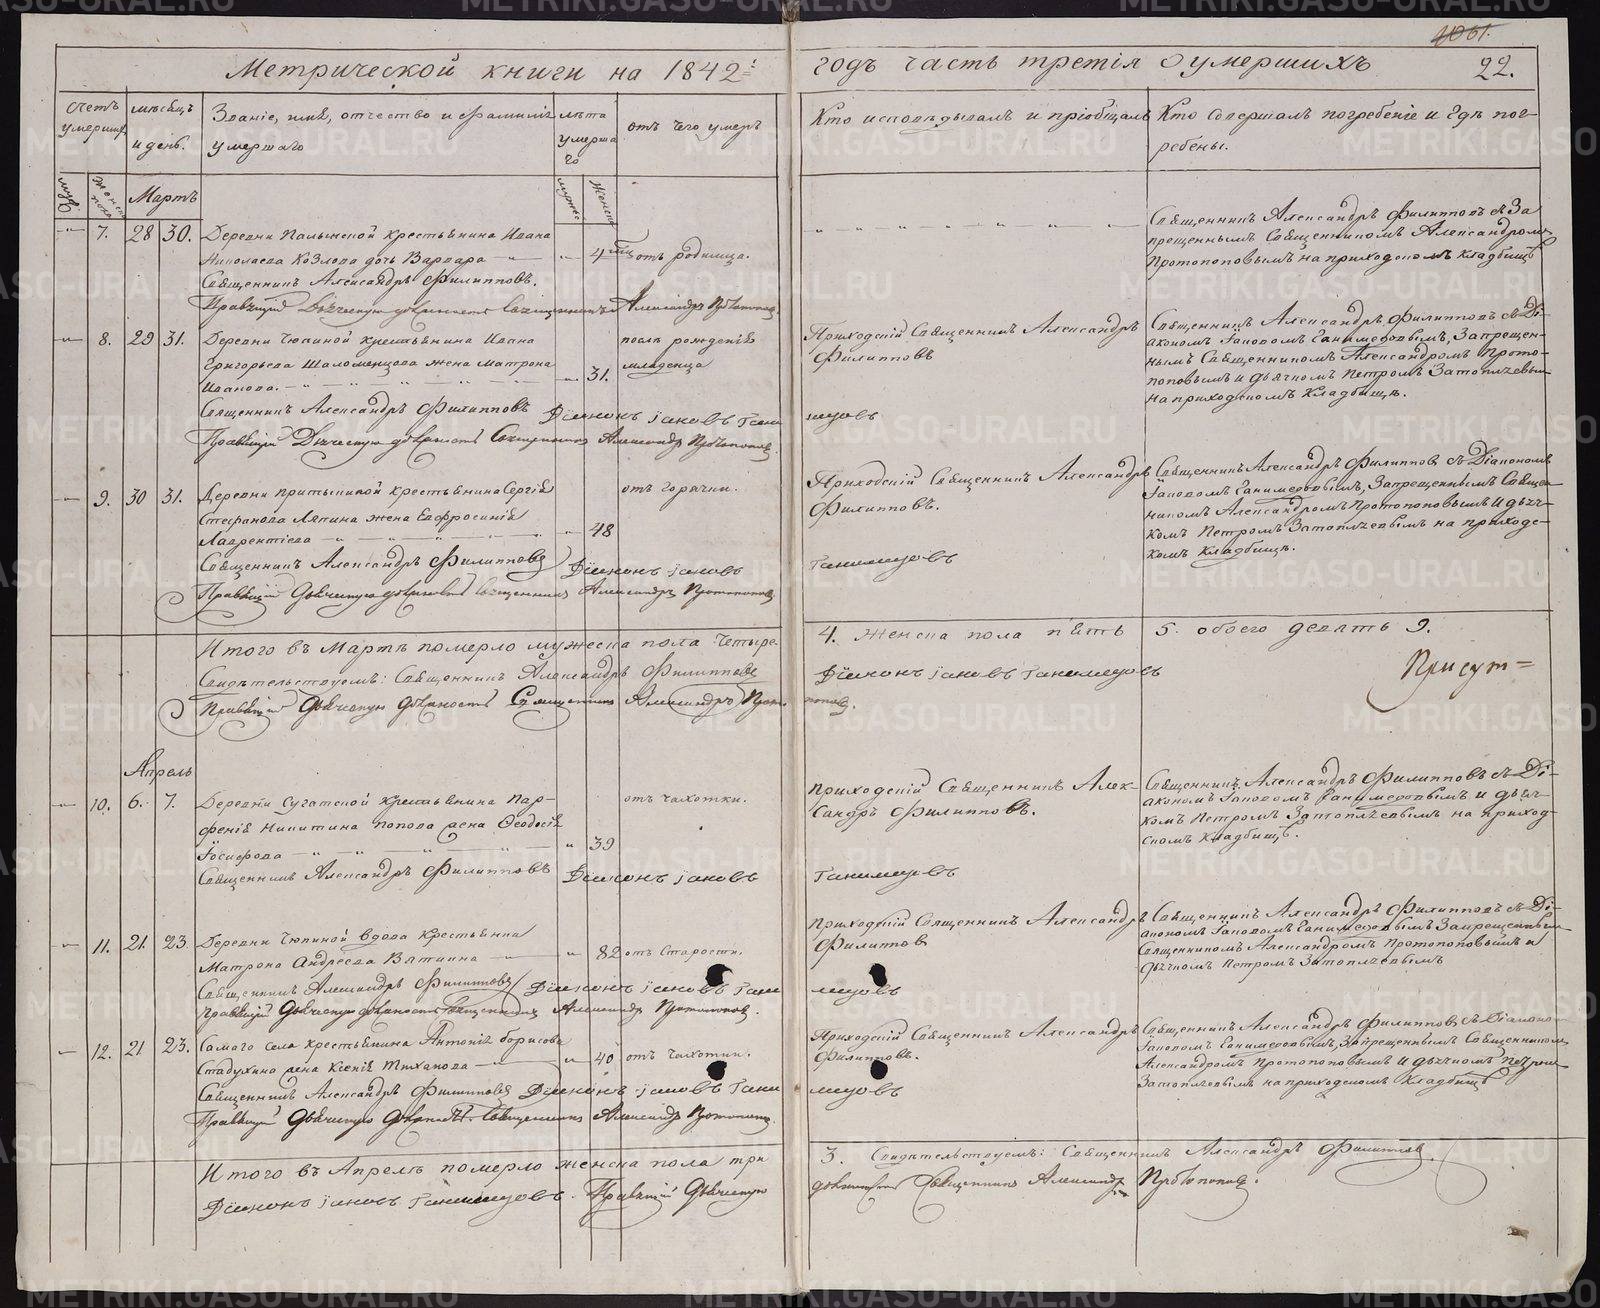 1061.
Метрической книги на 1842й
годъ часть третія о умершихъ 22.
Счетъ умершихъ
мѣсяцъ и день.
Званіе, имя, отчество и фамилія умершаго
лѣта умершаго
отъ чего умеръ
Кто исповѣдывалъ и пріобщалъ
Кто совершалъ погребеніе и гдѣ погребены.
муж.
Женска пола
Мартъ
мужеск
Женска
7. 28 30. Деревни крестьянина Ивана
Николаева Козлова дочь Варвара 4 отъ родимца.
Священникъ Александръ Филипповъ.
Правящій Дьяческую должность Священникъ Александръ Протопоповъ
Священникъ Александръ Филипповъ съ За
прещеннымъ Священникомъ Александромъ
Протопоповымъ на приходскомъ кладбищѣ
8. 29 31. Деревни Чюпиной крестьянина Ивана
Григорьева Шаломенцова жена Матрона
Иванова. 31.
послѣ рожденія
младенца
Священникъ Александръ Филипповъ Діаконъ Іаковъ Гани
Правящій Дьяческую должность Священникъ Александръ Протопоповъ
Приходскій Священникъ Александръ
Филипповъ
мѣдовъ
Священникъ Александръ Филипповъ съ Ді-
акономъ Іаковомъ Ганимедовымъ, Запрещен-
нымъ Священникомъ Александромъ Прото-
поповымъ и дьячкомъ Петромъ Затопляевымъ
на приходскомъ Кладбищѣ.
9. 30 31. Деревни крестьянина Сергія
Стефанова Ляпина жена Евфросинія
Лаврентіева 48
отъ горячки.
Священникъ Александръ Филипповъ Діаконъ Іаковъ
Правящій Дьяческую должность Священникъ Александръ Протопоповъ
Приходскій Священникъ Александръ
Филипповъ.
Ганимедовъ
Священникъ Александръ Филипповъ съ Діакономъ
Іаковомъ Ганимедовымъ, Запрещеннымъ Священ-
никомъ Александромъ Протопоповымъ и дьяч-
комъ Петромъ Затопляевымъ на приходс-
комъ Кладбищѣ.
Итого въ Мартѣ померло мужеска пола Четыре
4. женска пола пять 5. обоего девять 9.
Свидѣтельствуемъ: Священникъ Александръ Филипповъ
Діаконъ Іаковъ Ганимедовъ
Присут=
Правящій Дьяческую должность Священникъ Александръ Прото
поповъ.
Апрель
10. 6. 7. Деревни Сугатской крестьянина Пар-
фенія Никитина Попова жена Ѳеодосія
Іосифова 39
отъ чахотки.
Священникъ Александръ Филипповъ Діаконъ Іаковъ
Приходскій Священникъ Алек-
сандръ Филипповъ.
Ганимедовъ
Священникъ Александръ Филипповъ съ Ді-
акономъ Іаковомъ Ганимедовымъ и дьяч-
комъ Петромъ Затопляевымъ на приход-
скомъ Кладбищѣ.
11. 21. 23 Деревни Чюпиной вдова Крестьянка
Матрона Андреева Вяткина 82 отъ Старости.
Священникъ Александръ Филипповъ Діаконъ Іаковъ Гани
Правящій Дьяческую должность Священникъ Александръ Протопоповъ.
Приходскій Священникъ Александръ
Филиппов
мѣдовъ
Священникъ Александръ Филипповъ съ Ді-
акономъ Іаковомъ Ганимедовымъ Запрещеннымъ
Священникомъ Александромъ Протопоповымъ и
дьячкомъ Петромъ Затопляевымъ
12. 21 23. Самаго села крестьянина Антонія борисова
Стадухина жена Ксенія Тиханова 40 отъ чахотки.
Священникъ Александръ Филипповъ Діаконъ Іаковъ Гани
Правящій Дьяческую должность Священникъ Александръ Протопоповъ
Приходскій Священникъ Александръ
Филипповъ.
мѣдовъ
Священникъ Александръ Филипповъ съ Діакономъ
Іаковомъ Ганимедовымъ, Запрещеннымъ Священникомъ
Александромъ Протопоповымъ и дьячкомъ Петромъ
Затопляевымъ на приходскомъ Кладбищѣ
Итого въ Апрелѣ померло женска пола три
3. Свидѣтельствуемъ: Священникъ Александръ Филипповъ.
Діаконъ Іаковъ Ганимедовъ. Правящій Дьяческую
должность Священникъ Александръ Протопоповъ.
METRIKI.GASO-URAL.RU